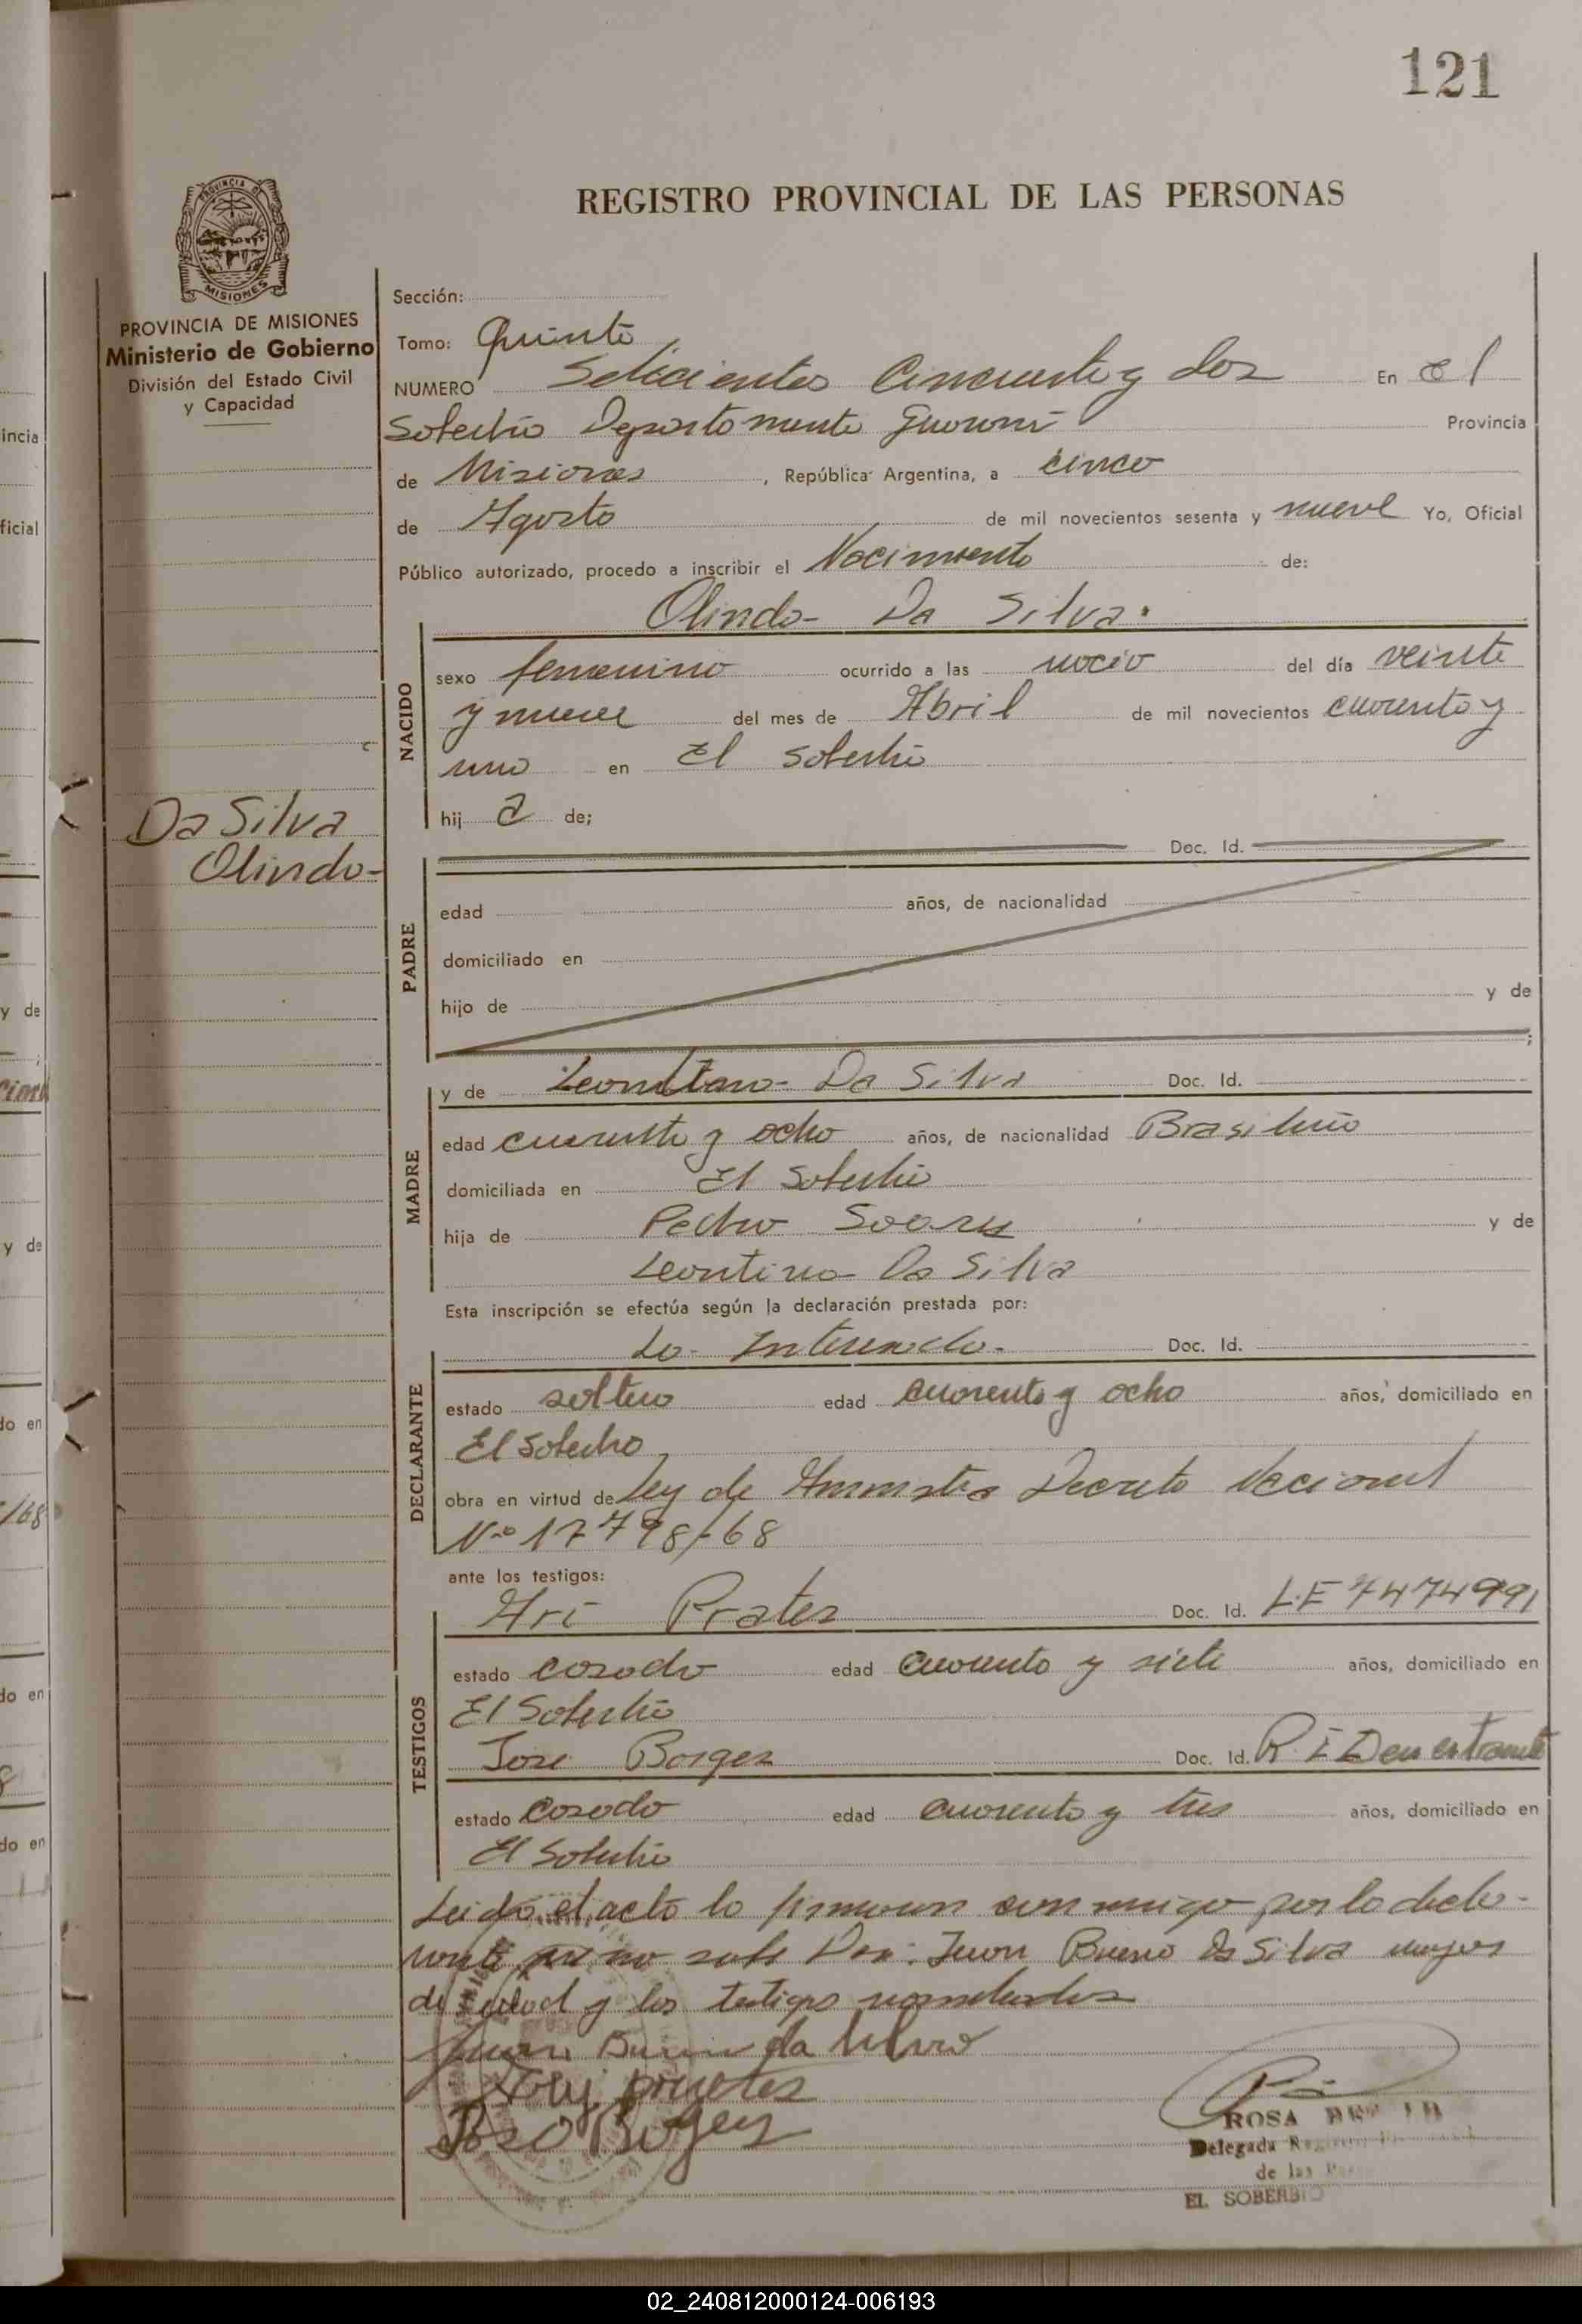 121
REGISTRO PROVINCIAL DE LAS PERSONAS
PROVINCIA DE MISIONES
Ministerio de Gobierno
División del Estado Civil
y Capacidad
Da Silva
Olinda-
Sección:
Tomo: Quinto
NUMERO Setecientos Cincuenta y dos En el
Soberbio Departamento Guarani Provincia
de Misiones, República Argentina, a cinco
de Agosto de mil novecientos sesenta y nueve Yo, Oficial
Público autorizado, procedo a inscribir el Nacimiento de:
Olinda- Da Silva.
NACIDO
sexo femenino ocurrido a las nacio del día veinte
y nueve del mes de Abril de mil novecientos cuarenta y
uno en El Soberbio
hij a de;
PADRE
Doc. Id.
edad años, de nacionalidad
domiciliado en
hijo de y de
;
MADRE
y de Da Silva Doc. Id.
edad cuarenta y ocho años, de nacionalidad Brasileña
domiciliada en El Soberbio
hija de Pedro Soares y de
Leontina Da Silva
Esta inscripción se efectúa según la declaración prestada por:
DECLARANTE
La Interesada. Doc. Id.
estado soltera edad cuarenta y ocho años, domiciliado en
El Soberbio
obra en virtud de Ley de Amnistia Decreto Nacional
Nº 17798/68
ante los testigos:
TESTIGOS
Ari Prates Doc. Id. L.E 7474991
estado casado edad cuarenta y siete años, domiciliado en
El Soberbio
Jose Borges Doc. Id. R.I D en tramite
estado casado edad cuarenta y tres años, domiciliado en
El Soberbio
Leido el acta la firmaron conmigo por la decla-
rante que no sabe Don: Juan Bueno Da Silva mayor
de edad y los testigos nombrados
Juan Bueno da Silva
ROSA
Delegada
de las
EL SOBERBIO
02_240812000124-006193